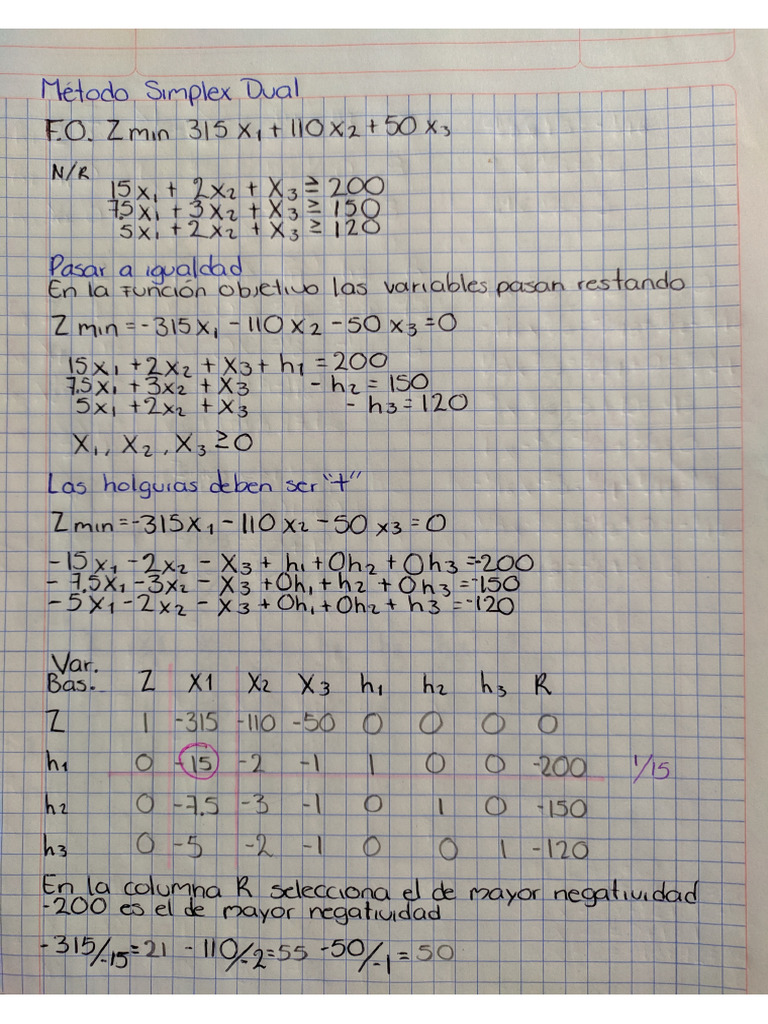 Método Simplex Dual
F.O. Z min 315 X₁ + 110 X₂ + 50 X₃
N/R
15X₁ + 2X₂ + X₃ ≥ 200
7.5X₁ + 3X₂ + X₃ ≥ 150
5X₁ + 2X₂ + X₃ ≥ 120
Pasar a igualdad
En la Función objetivo las variables pasan restando
Z min = -315X₁ - 110 X₂ - 50 X₃ = 0
15X₁ + 2X₂ + X₃ + h₁ = 200
7.5X₁ + 3X₂ + X₃ - h₂ = 150
5X₁ + 2X₂ + X₃ - h₃ = 120
X₁, X₂, X₃ ≥ 0
Las holguias deben ser "+"
Z min = -315X₁ - 110 X₂ - 50 X₃ = 0
-15X₁ - 2X₂ - X₃ + h₁ + 0h₂ + 0h₃ = -200
- 7.5X₁ - 3X₂ - X₃ + 0h₁ + h₂ + 0h₃ = -150
- 5X₁ - 2X₂ - X₃ + 0h₁ + 0h₂ + h₃ = -120
Var.
Bas. Z X1 X₂ X₃ h₁ h₂ h₃ R
Z 1 -315 -110 -50 0 0 0 0
h₁ 0 -15 -2 -1 1 0 0 -200 1/15
h₂ 0 -7.5 -3 -1 0 1 0 -150
h₃ 0 -5 -2 -1 0 0 1 -120
En la columna R selecciona el de mayor negatividad
-200 es el de mayor negatividad
-315/-15 = 21 - 110/-2 = 55 -50/-1 = 50